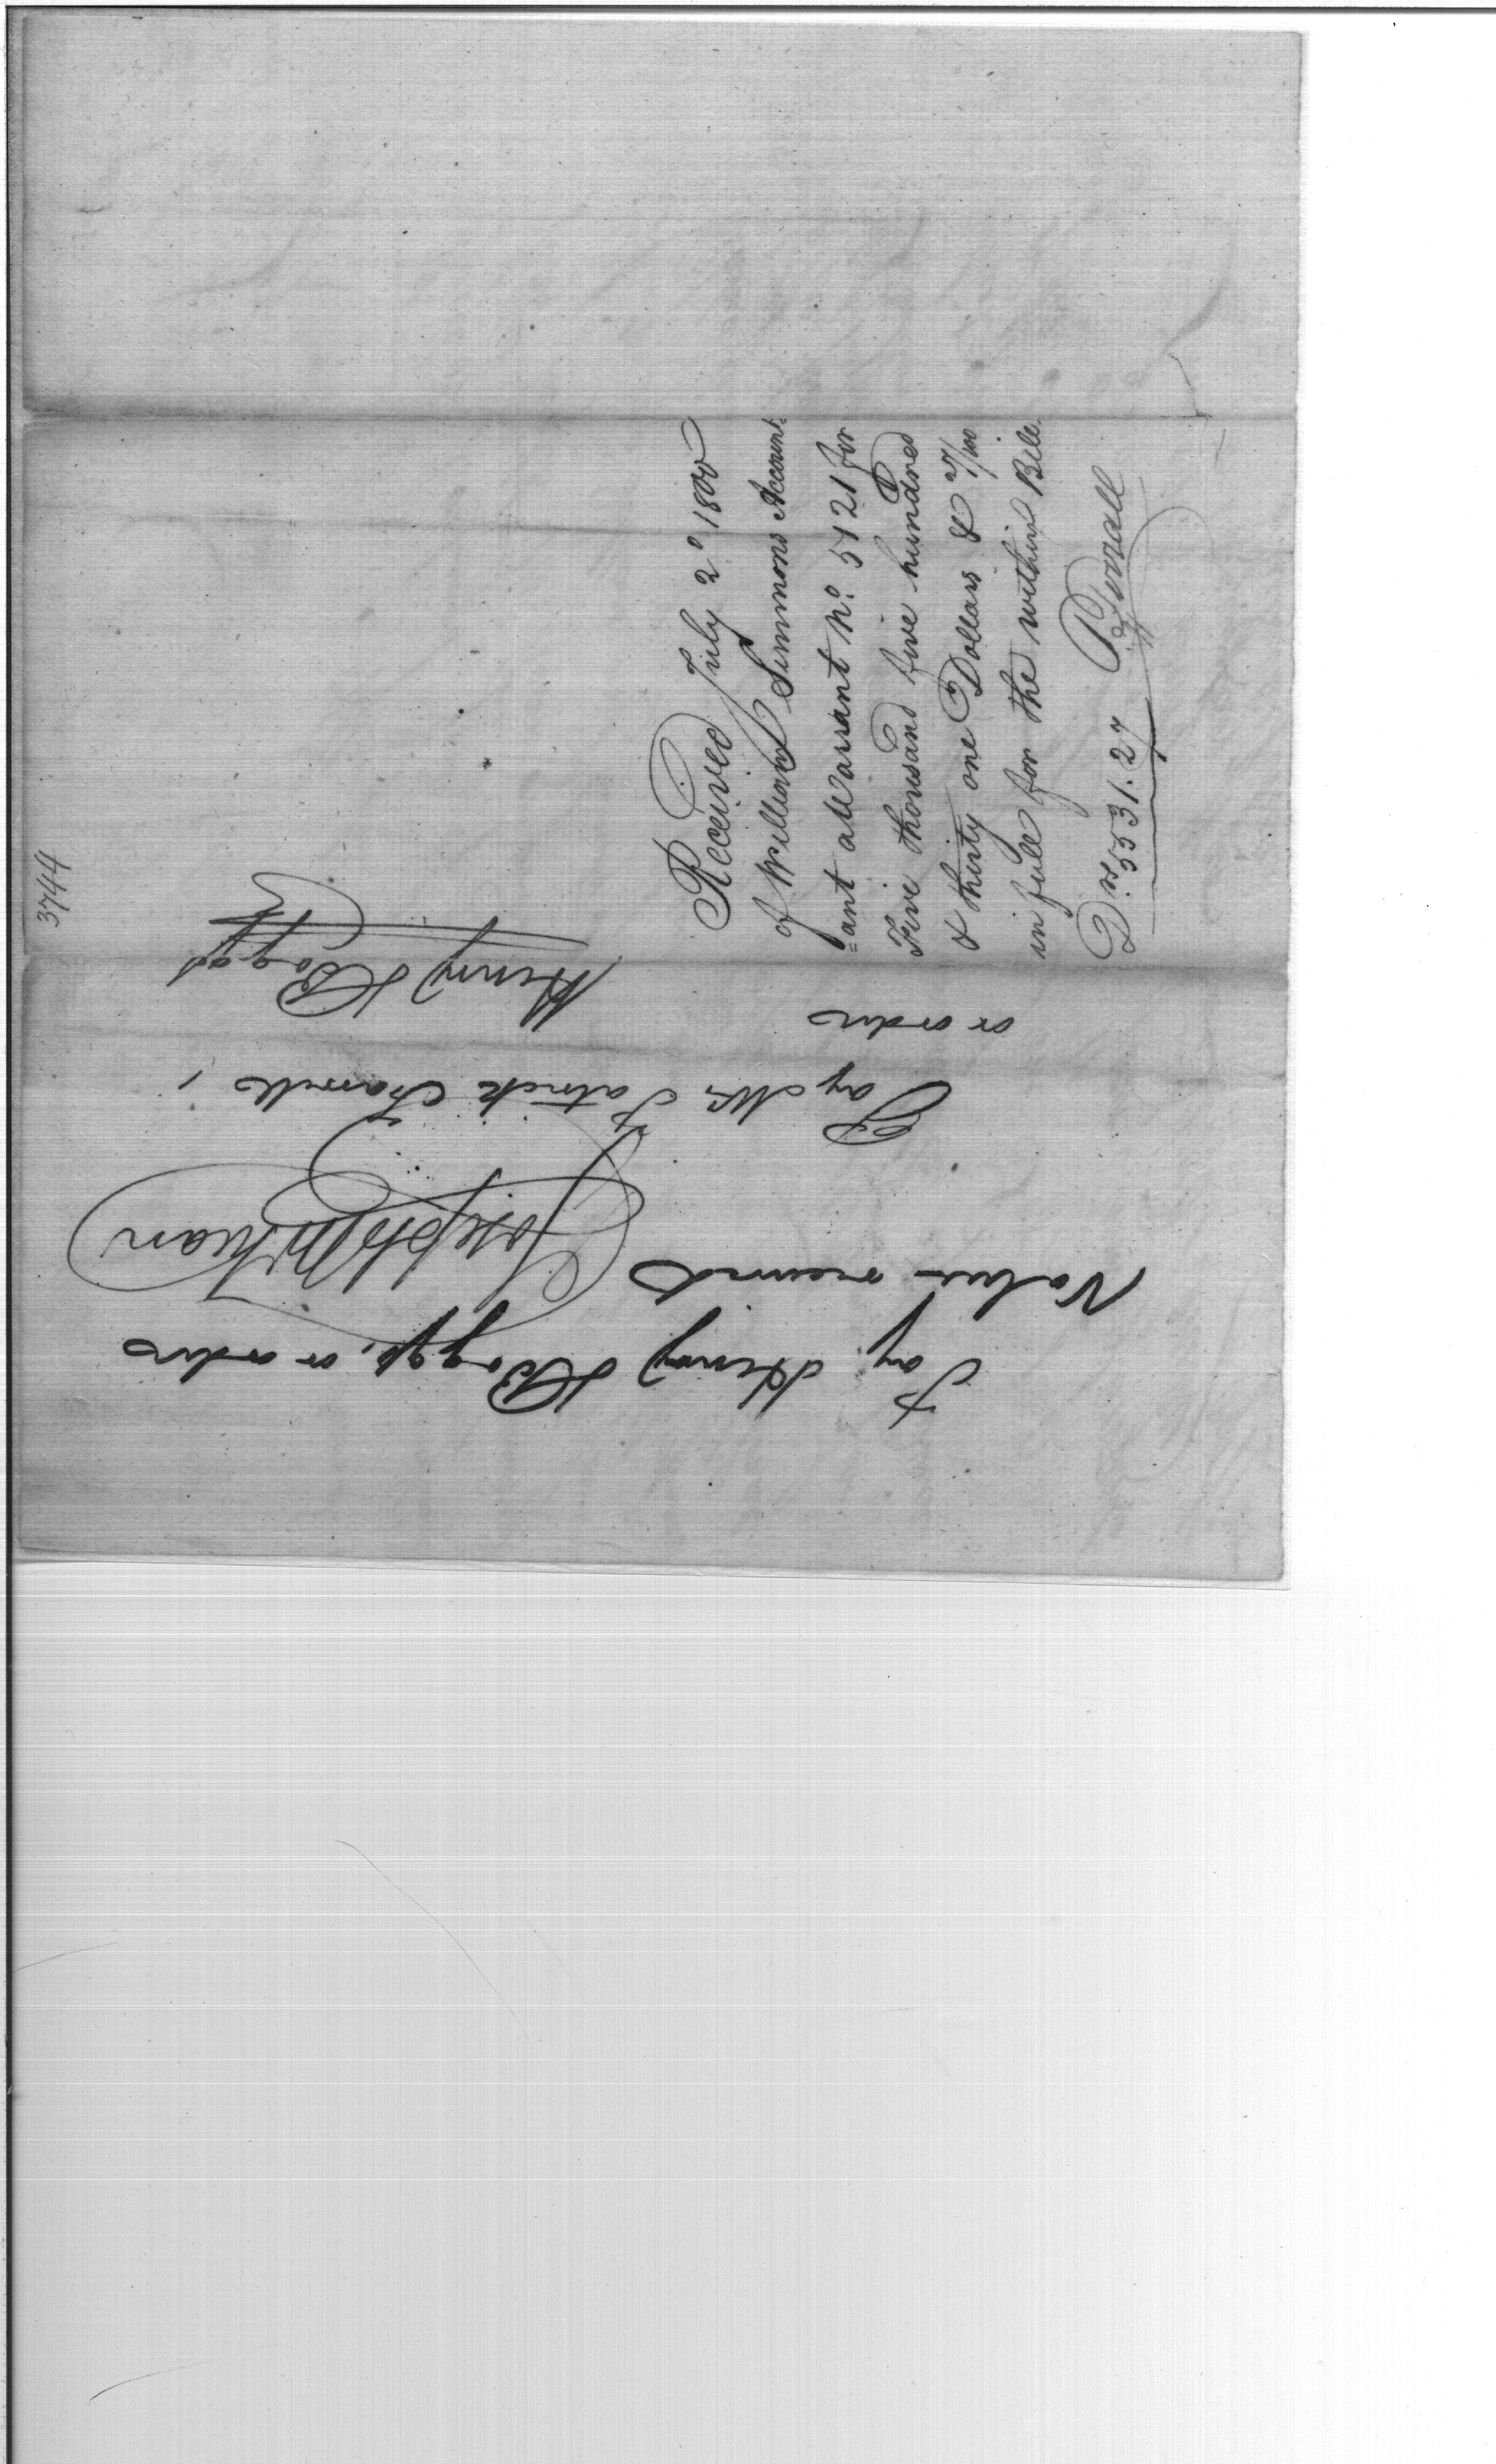 3744
Pay Henry Boggs, or order
Value received
Joseph McKean
Pay Mr. Patrick Farrell,
or order
Henry Boggs
Received July 2d 1800
of William Simmons Account-
=ant a Warrant No. 5121 for
Five thousand five hundred
& thirty one Dollars & 27/100
in full for the within Bill.
Drs 5531.27
PFarrall